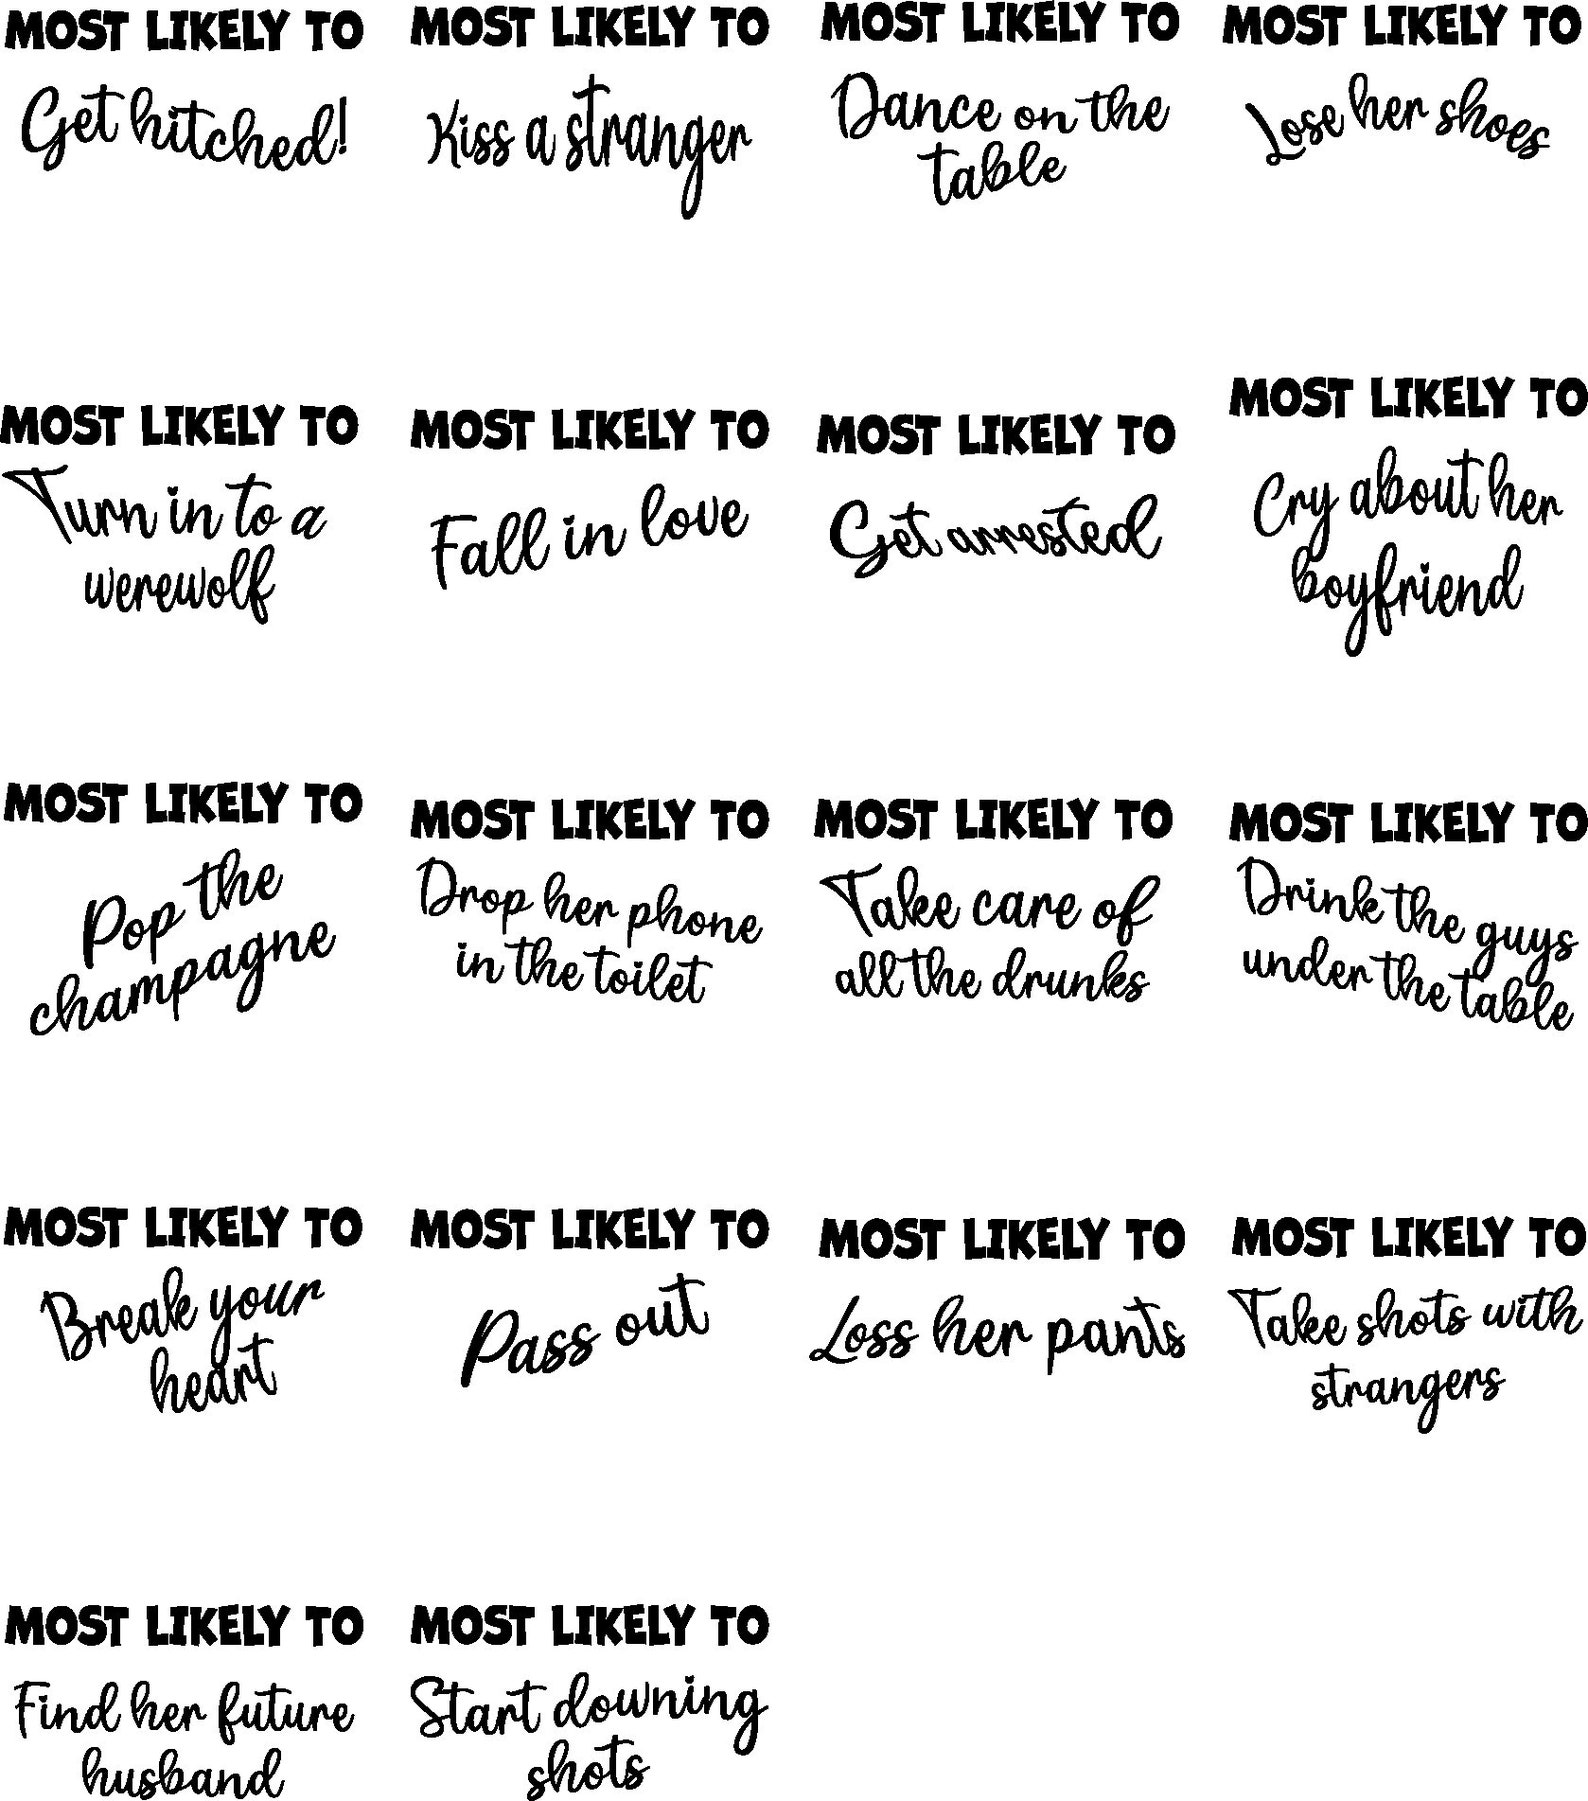 MOST LIKELY TO
Get hitched!
MOST LIKELY TO
Kiss a stranger
MOST LIKELY TO
Dance on the
table
MOST LIKELY TO
Lose her shoes
MOST LIKELY TO
Turn in to a
werewolf
MOST LIKELY TO
Fall in love
MOST LIKELY TO
Get arrested
MOST LIKELY TO
Cry about her
boyfriend
MOST LIKELY TO
Pop the
champagne
MOST LIKELY TO
Drop her phone
in the toilet
MOST LIKELY TO
Take care of
all the drunks
MOST LIKELY TO
Drink the guys
under the table
MOST LIKELY TO
Break your
heart
MOST LIKELY TO
Pass out
MOST LIKELY TO
Loss her pants
MOST LIKELY TO
Take shots with
strangers
MOST LIKELY TO
Find her future
husband
MOST LIKELY TO
Start downing
shots